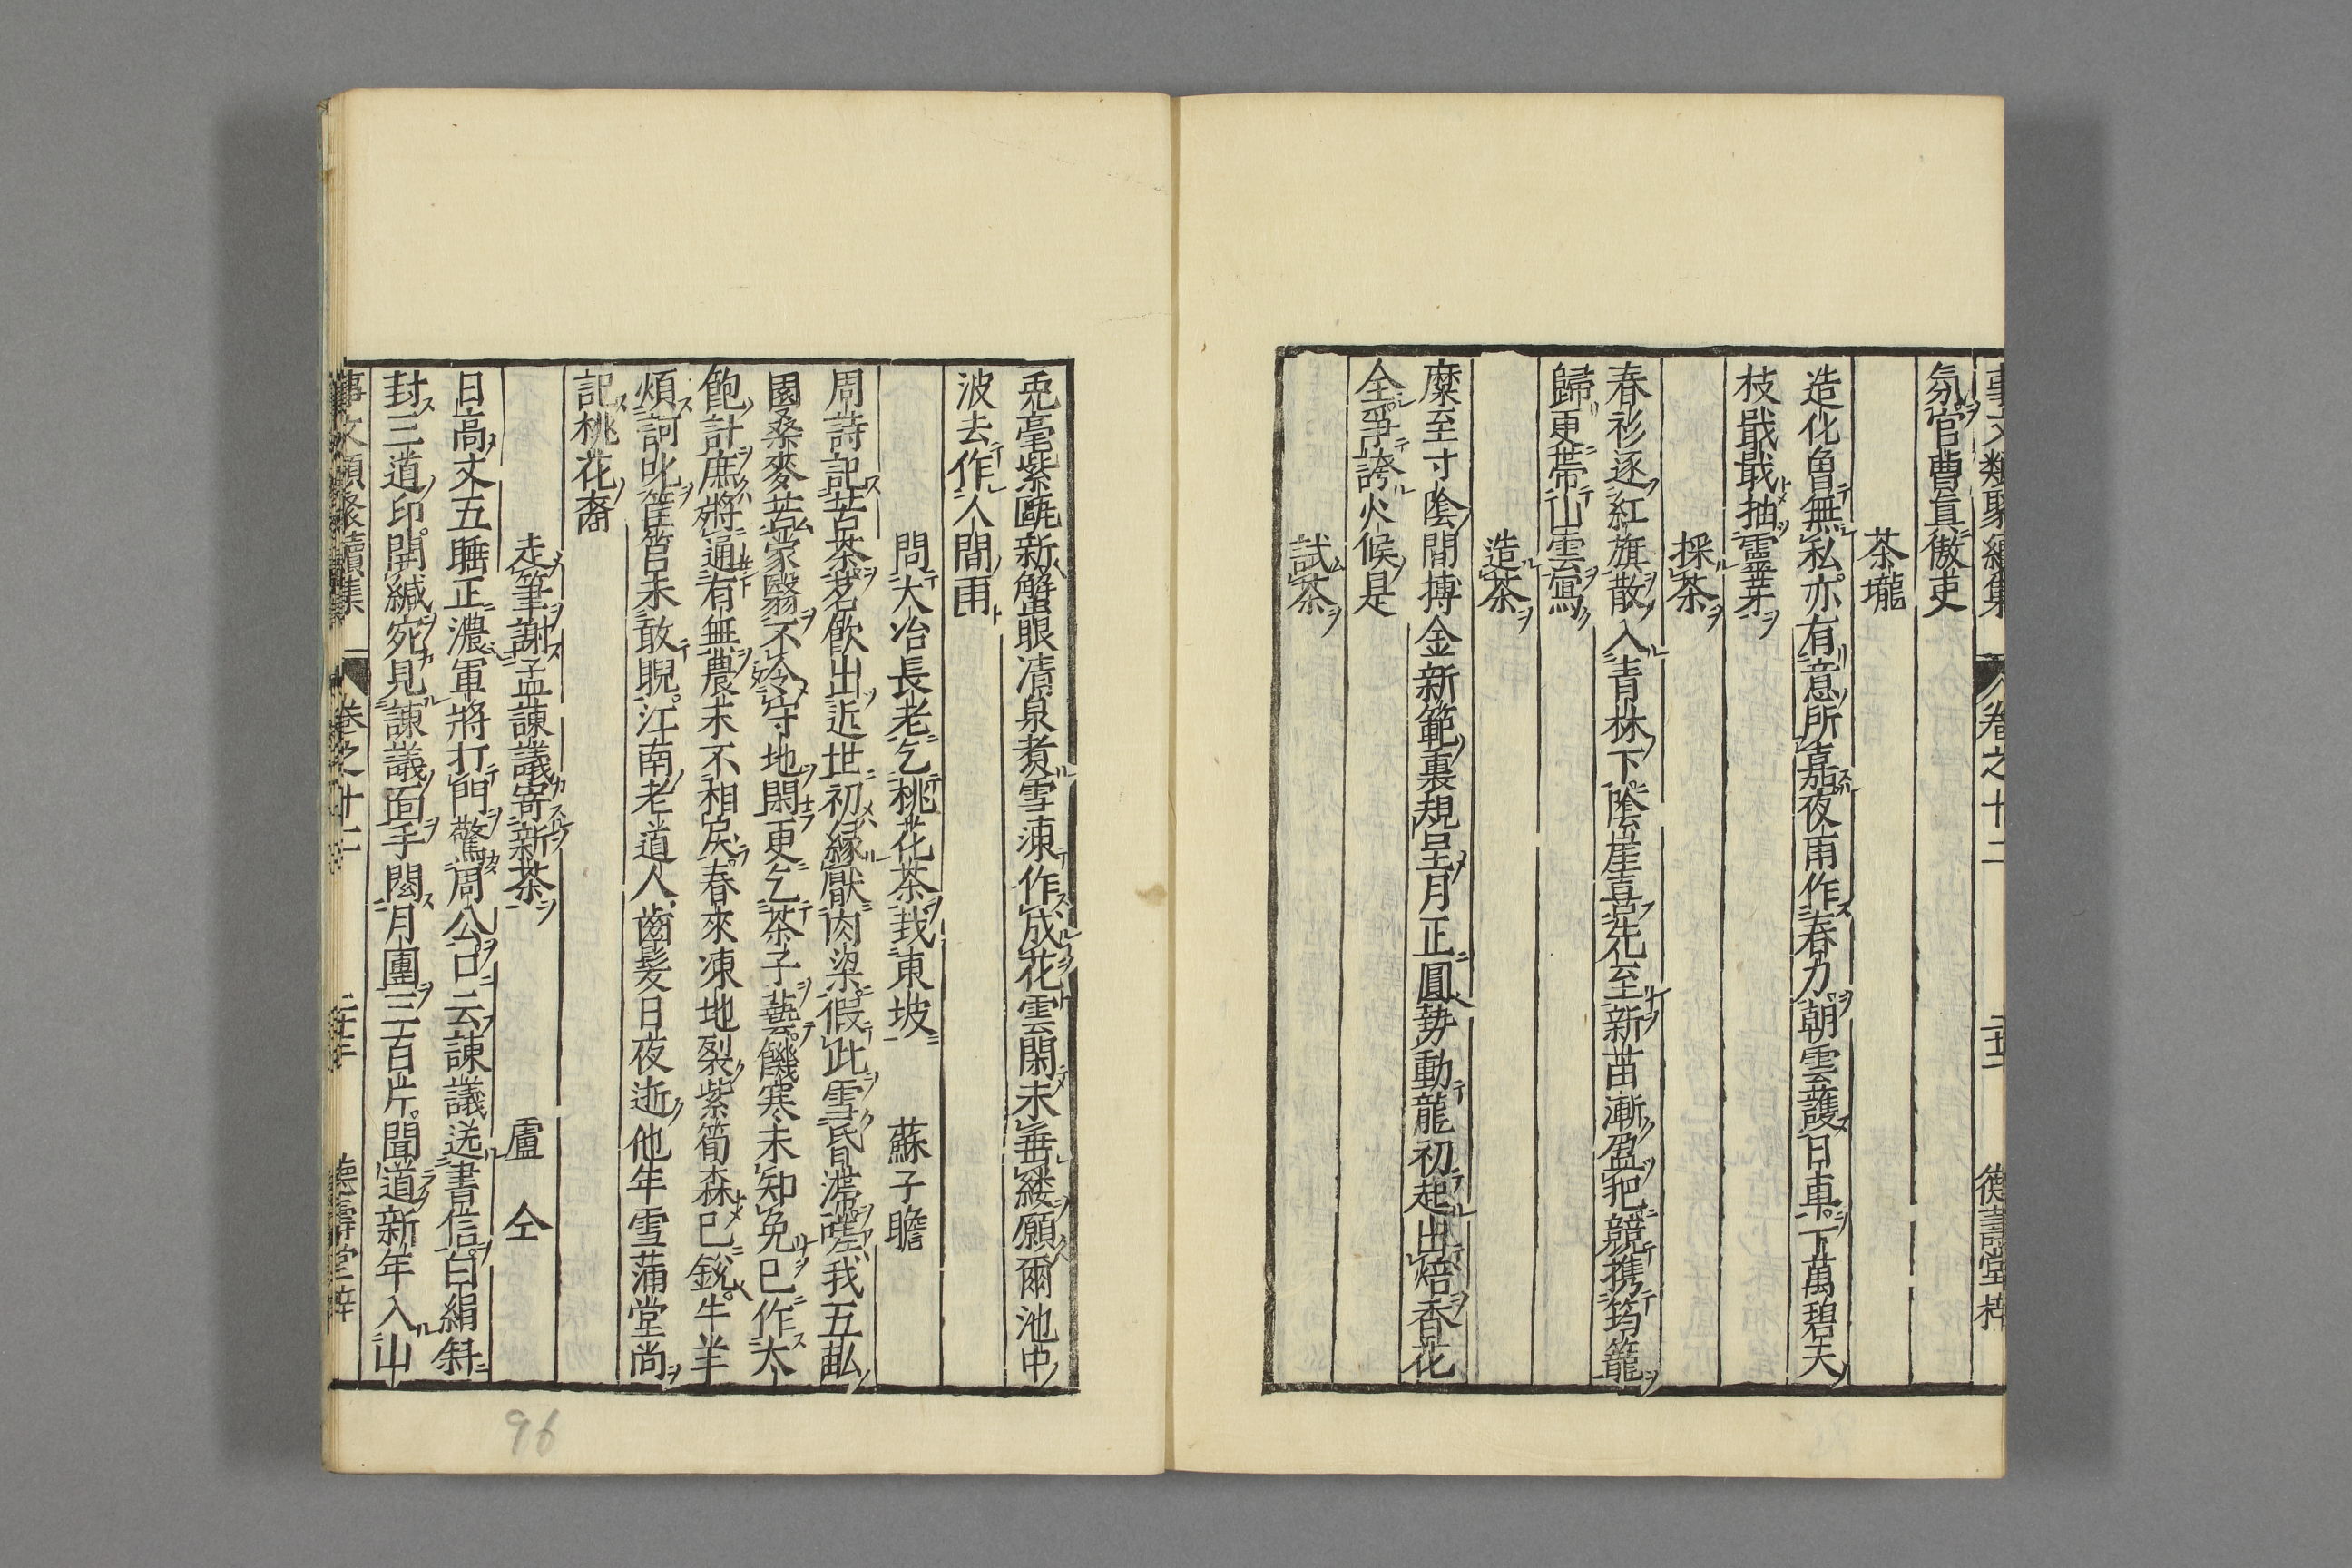 事文類聚續集 卷之十二 德壽堂梓
氛官曹真傲吏
茶壠
造化曾無私亦有意所嘉夜雨作春力朝雲護日車下萬碧天
枝戢戢抽靈芽
採茶
春衫逐紅旗散入青林下陰崖喜先至新苗漸盈把競携筠籠
歸更帶山雲寫
造茶
糜至寸陰間搏金新範裏規呈月正圓勢動龍初起出焙香花
全爭誇火候是
試茶
兎毫紫甌新蟹眼清泉煮雪凍作成花雲閑未垂縷願爾池中
波去作人間雨
問大冶長老乞桃花茶栽東坡 蘇子瞻
周詩記苦茶茗飲出近世初縁厭肉粱假此雪昏滯嗟我五畝
園桑麥苦蒙翳不令寸地閑更乞茶子蓺饑寒未知免已作太
飽計庶將通有無農末不相戾春來凍地裂紫筍森已鋭牛羊
煩訶叱筐筥未敢睨江南老道人齒髮日夜逝他年雪蒲堂尚
記桃花裔
走筆謝孟諫議寄新茶 盧仝
日高丈五睡正濃軍將打門驚周公口云諫議送書信白絹斜
封三道印開緘宛見諫議面手閱月團三百片聞道新年入山
事文類聚續集 卷之十二 德壽堂梓
96